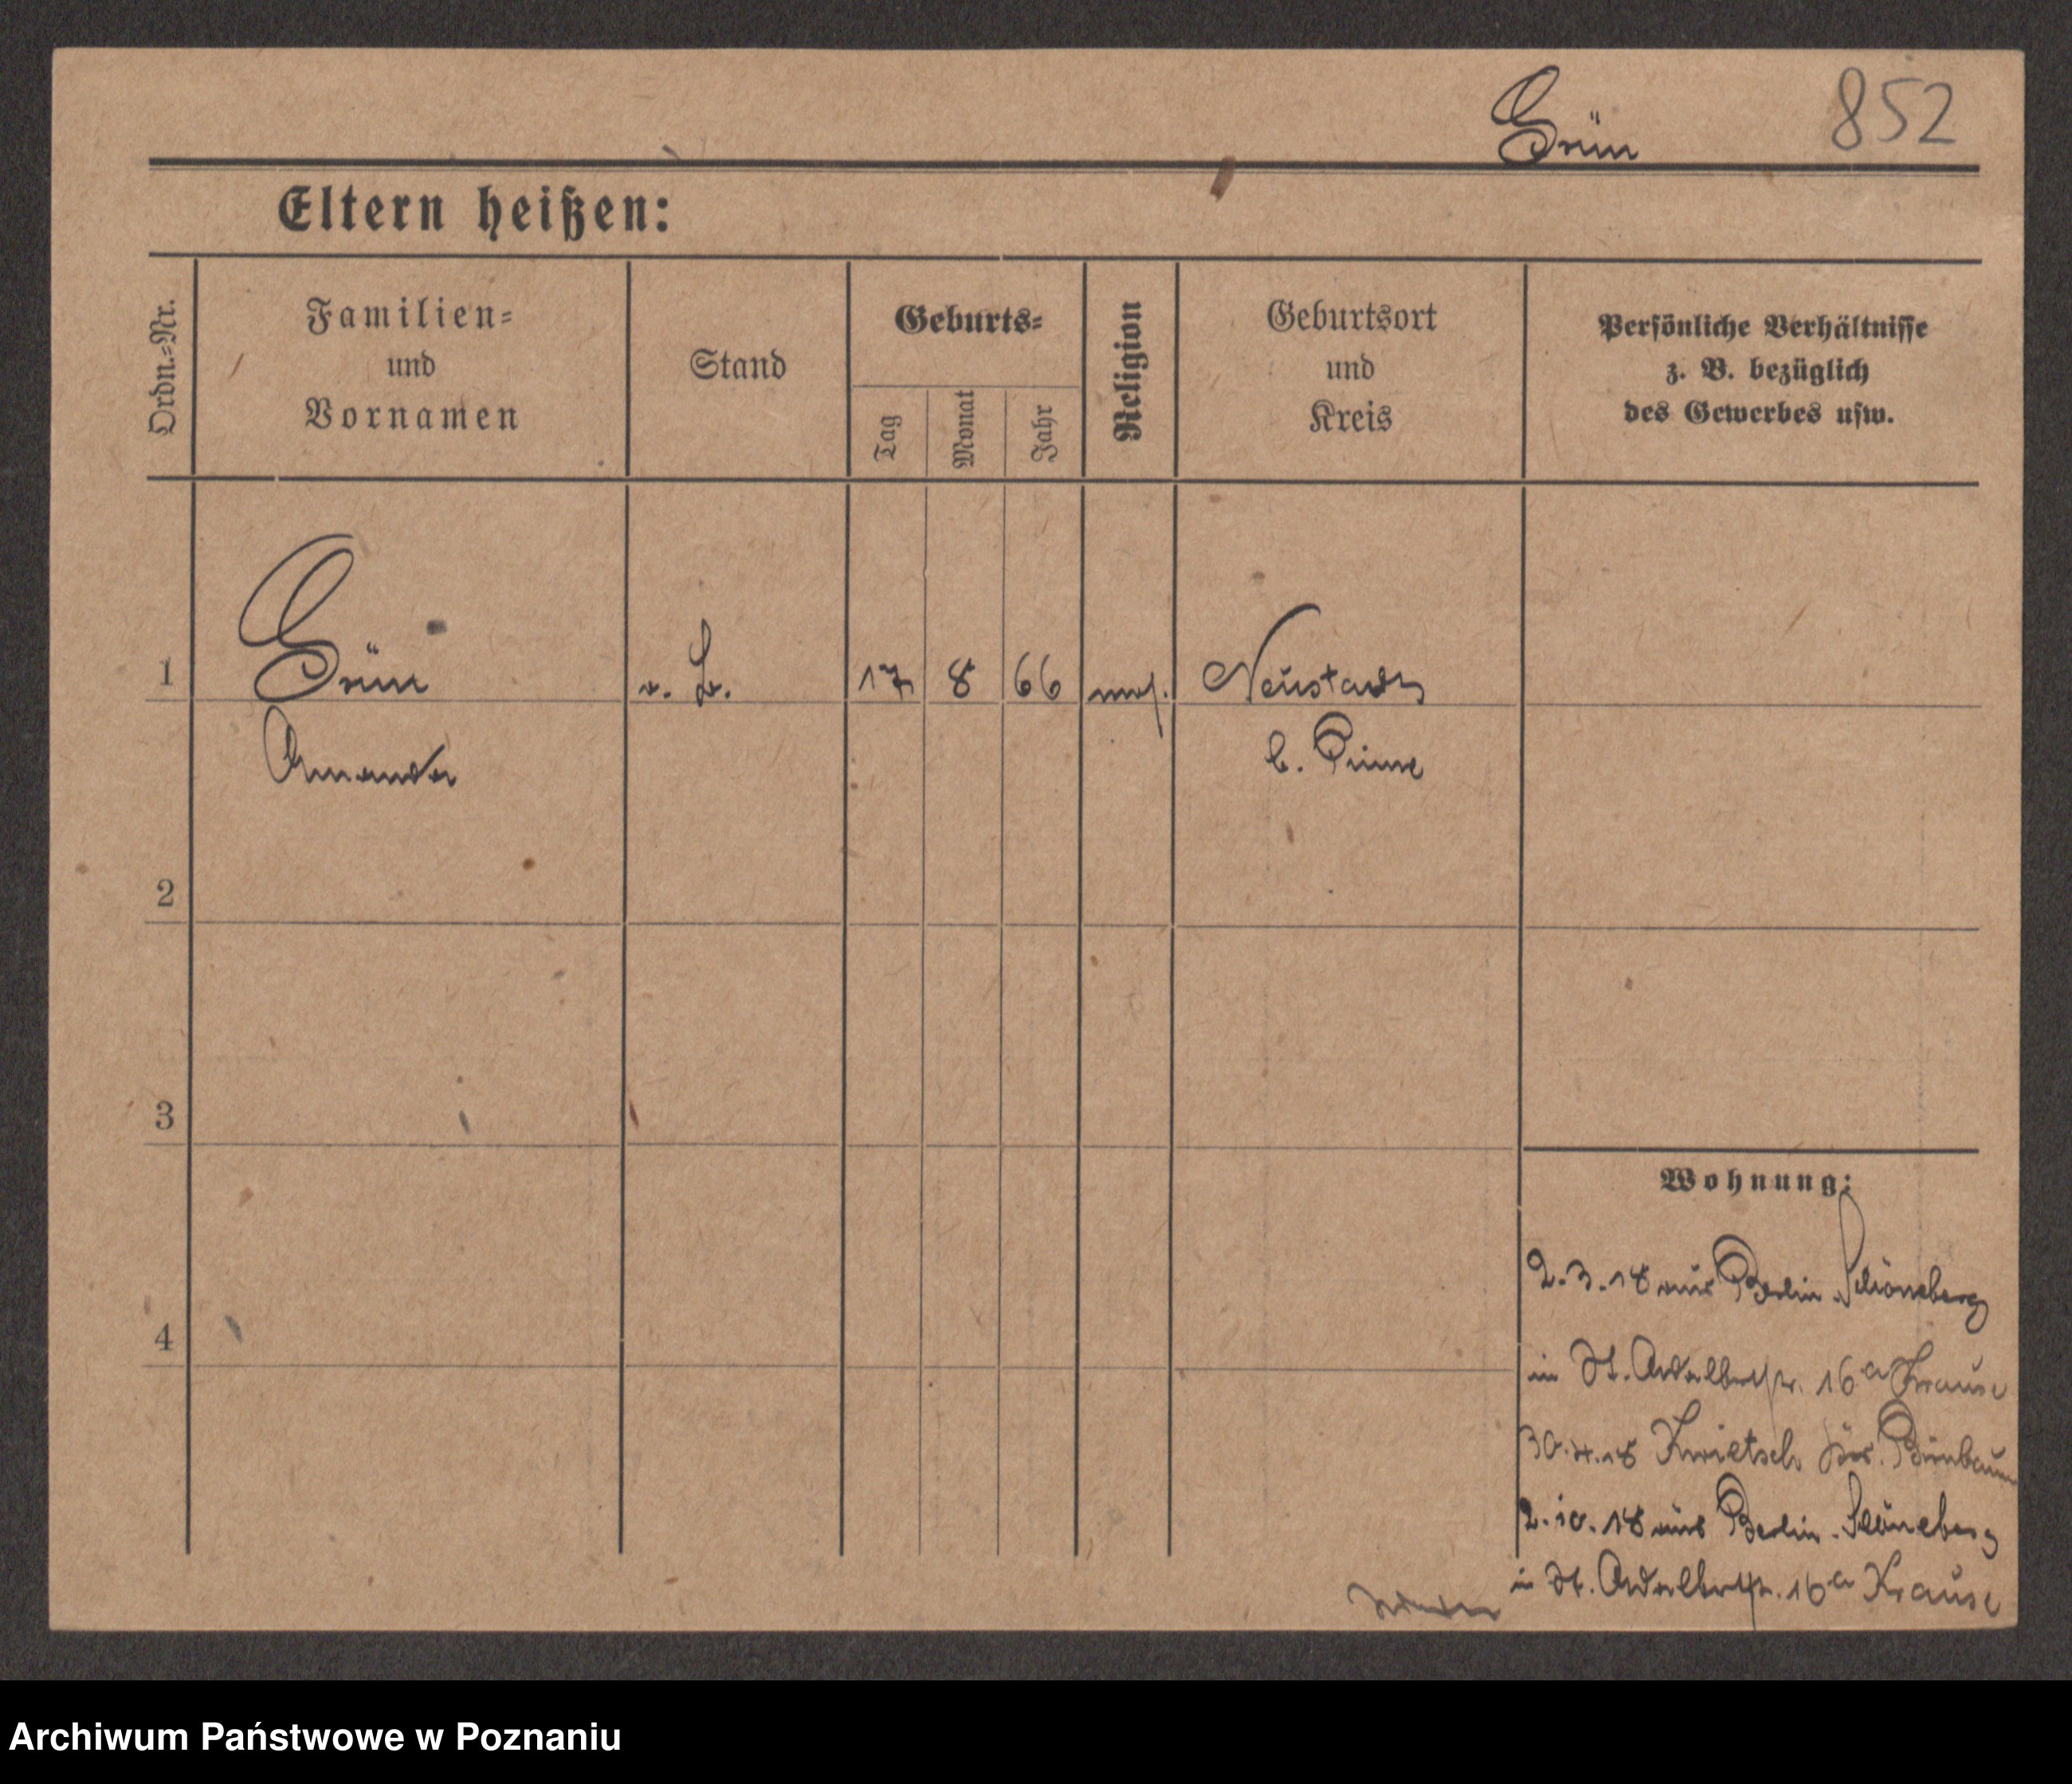 Grün 852
Eltern heißen:
Ordn.-Nr.
Familien-
und
Vornamen
Stand
Geburts-
Tag
Monat
Jahr
Religion
Geburtsort
und
Kreis
Persönliche Verhältnisse
z. B. bezüglich
des Gewerbes usw.
1 Grün 17 8 66 mos. Neustadt
Amanda b. Pinne
2
3
4
Wohnung:
2.3.18 aus Berlin Schöneberg
in St. Adalbertstr. 16a Krause
30.4.18 Kwietsch Birnbaum
2.10.18 aus Berlin-Schöneberg
in St. Adalbertstr. 16a Krause
Archiwum Państwowe w Poznaniu